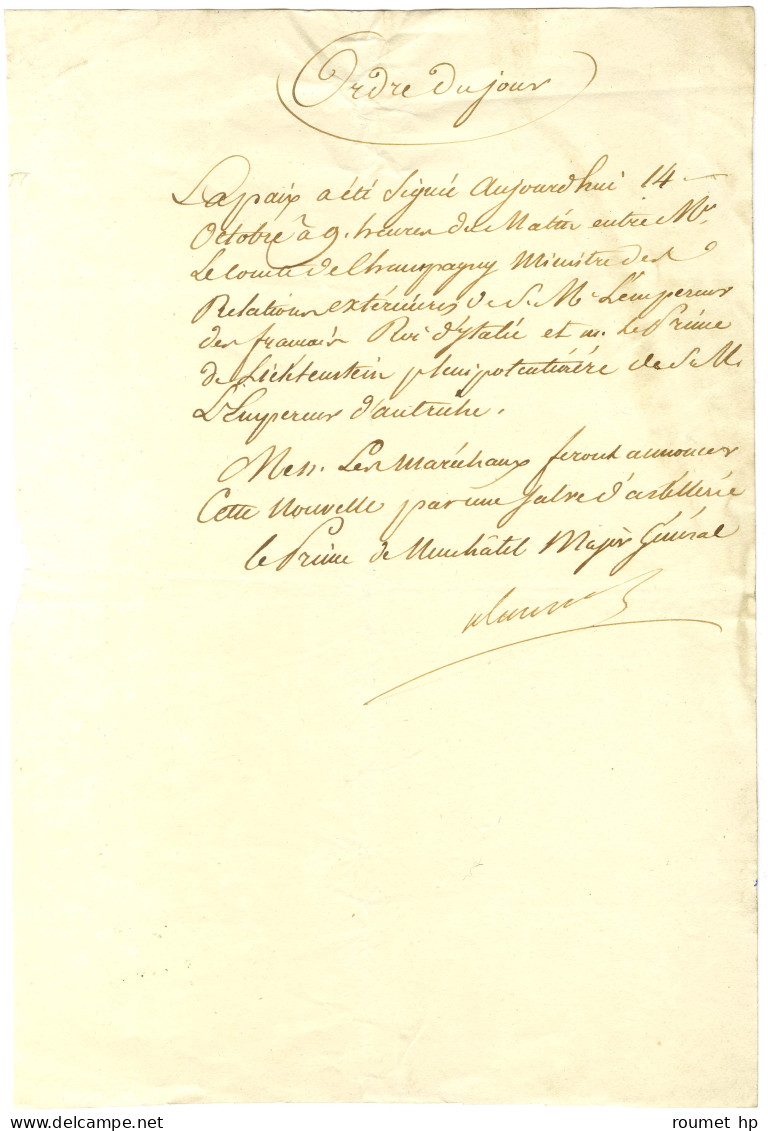 Ordre du jour
La paix a été Signée Aujourdhui 14
Octobre à 9. heures du Matin entre Mr.
Le Comte de Champagny Ministre des
Relations extérieures de S. M. L'empereur
des français Roi d'Italie et m. Le Prince
de Lichtenstein plenipotentiaire de S. M.
L'Empereur d'autriche.
Mess. Les Maréchaux feront annoncer
Cette Nouvelle par une Salve d'artillerie
le Prince de Neuchâtel Major Général
roumet hp